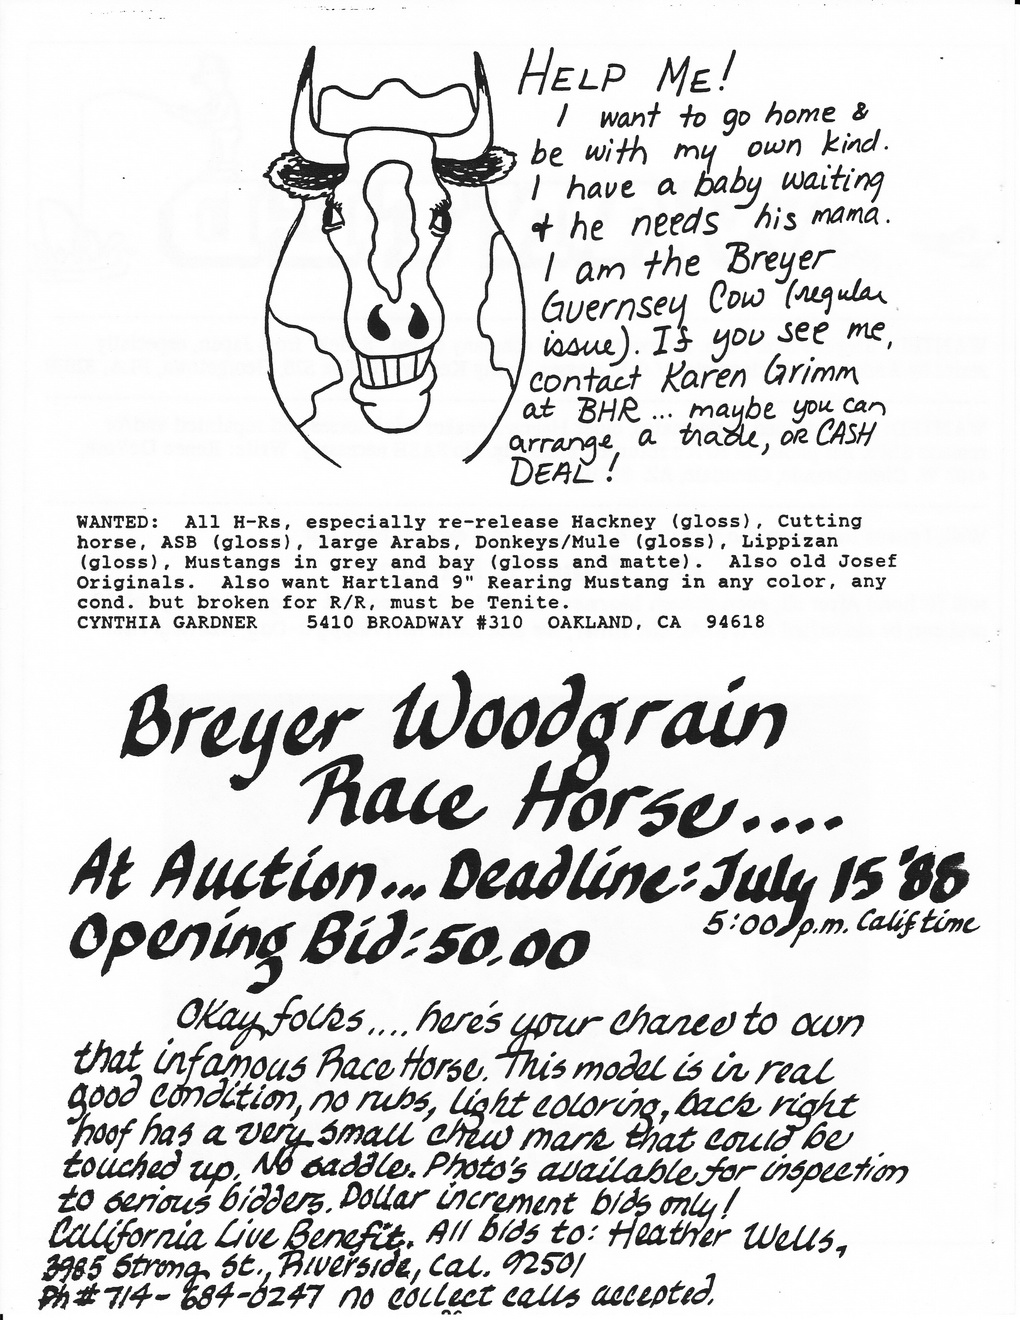 HELP ME!
I want to go home &
be with my own kind.
I have a baby waiting
& he needs his mama.
I am the Breyer
Guernsey Cow (regular
issue). If you see me,
contact Karen Grimm
at BHR ... maybe you can
arrange a trade, OR CASH
DEAL!
WANTED: All H-Rs, especially re-release Hackney (gloss), Cutting
horse, ASB (gloss), large Arabs, Donkeys/Mule (gloss), Lippizan
(gloss), Mustangs in grey and bay (gloss and matte). Also old Josef
Originals. Also want Hartland 9" Rearing Mustang in any color, any
cond. but broken for R/R, must be Tenite.
CYNTHIA GARDNER 5410 BROADWAY #310 OAKLAND, CA 94618
Breyer Woodgrain
Race Horse....
At Auction... Deadline: July 15 '86
5:00 p.m. Calif time
Opening Bid: 50.00
Okay folks.... here's your chance to own
that infamous Race Horse. This model is in real
good condition, no rubs, light coloring, back right
hoof has a very small chew mark that could be
touched up. No saddle. Photo's available for inspection
to serious bidders. Dollar increment bids only!
California Live Benefit. All bids to: Heather Wells,
3985 Strong St., Riverside, Cal. 92501
Ph # 714-684-0247 no collect calls accepted.